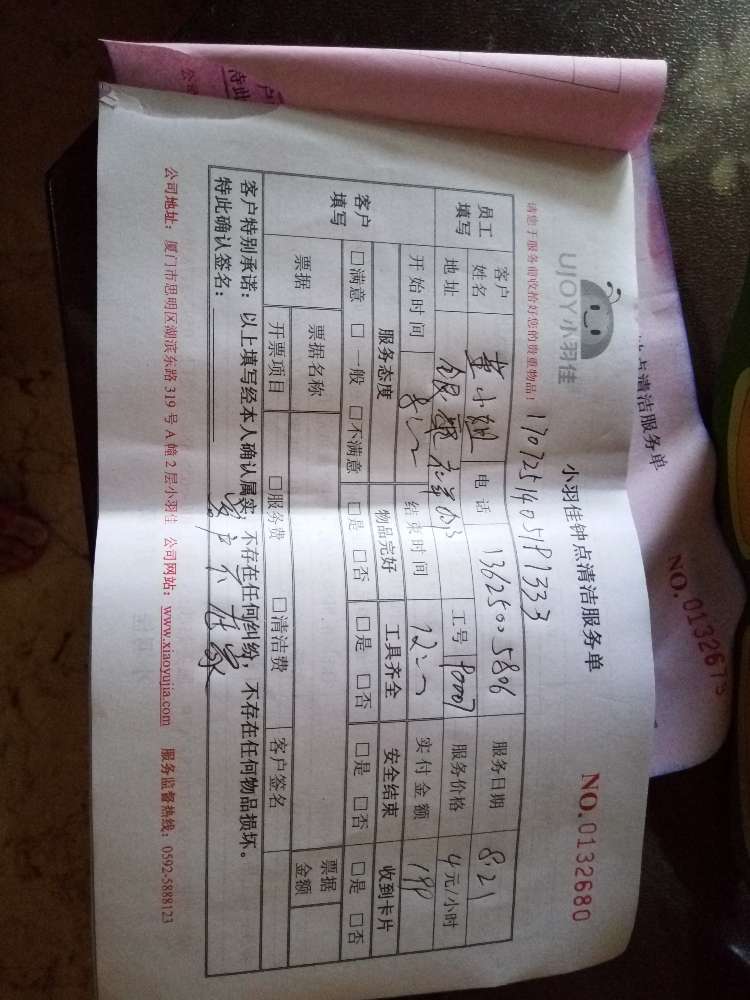 UJOY小羽佳
小羽佳钟点清洁服务单
NO.0132680
请您于服务前收拾好您的贵重物品!
员工填写
客户姓名
小姐
电话
13625005806
服务日期
8.21
地址
工号
90007
服务价格
元/小时
开始时间
结束时间
12:00
实付金额
客户填写
服务态度 物品完好 工具齐全 安全结束 收到卡片
□满意 □一般 □不满意 □是 □否 □是 □否 □是 □否 □是 □否
票据
票据名称
票据金额
开票项目
□服务费 □清洁费 客户签名
客户特别承诺:以上填写经本人确认属实,不存在任何纠纷,不存在任何物品损坏。
特此确认签名:
客户不在家
公司地址:厦门市思明区湖滨东路319号A幢2层小羽佳 公司网站:www.xiaoyujia.com 服务监督热线:0592-5888123
点清洁服务单
NO.0132679